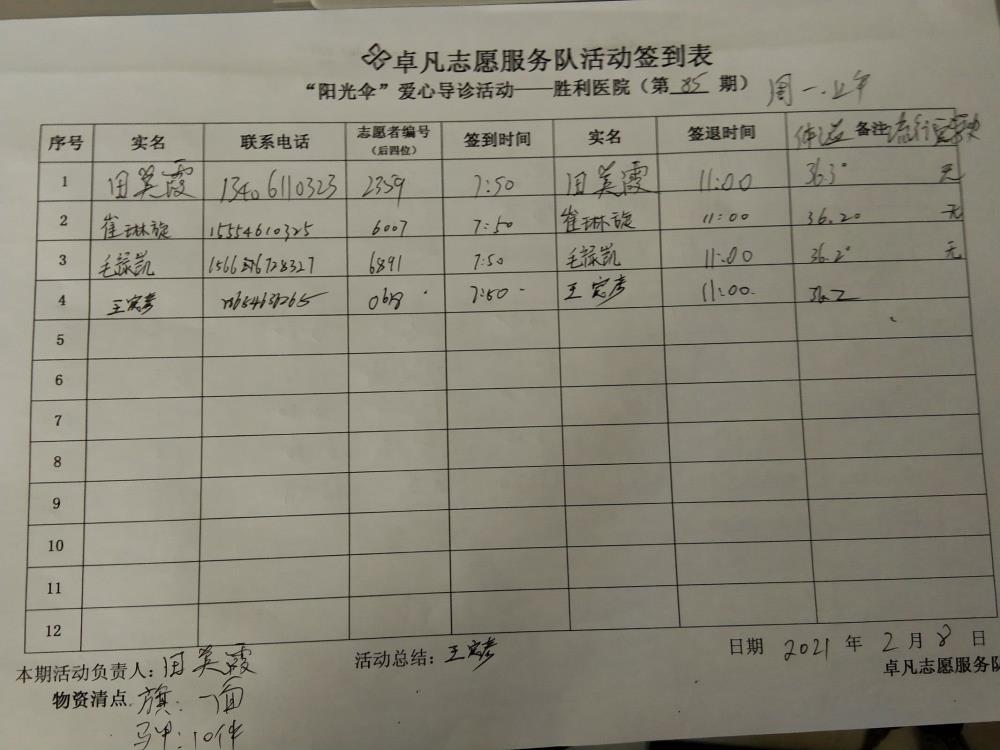 卓凡志愿服务队活动签到表
“阳光伞”爱心导诊活动——胜利医院（第 85 期） 周一.上午
序号 实名 联系电话 志愿者编号（后四位） 签到时间 实名 签退时间 体温 备注 流行
1 田美霞 13406110323 2359 7:50 田美霞 11:00 36.3° 无
2 崔琳旋 15554610325 6007 7:50 崔琳旋 11:00 36.20 无
3 毛禄凯 6891 7:50 毛禄凯 11:00 36.2° 无
4 7:50 11:00 36.2
5
6
7
8
9
10
11
12
本期活动负责人：田美霞 活动总结： 日期 2021 年 2 月 8 日
卓凡志愿服务队
物资清点 旗：一面
马甲：10件